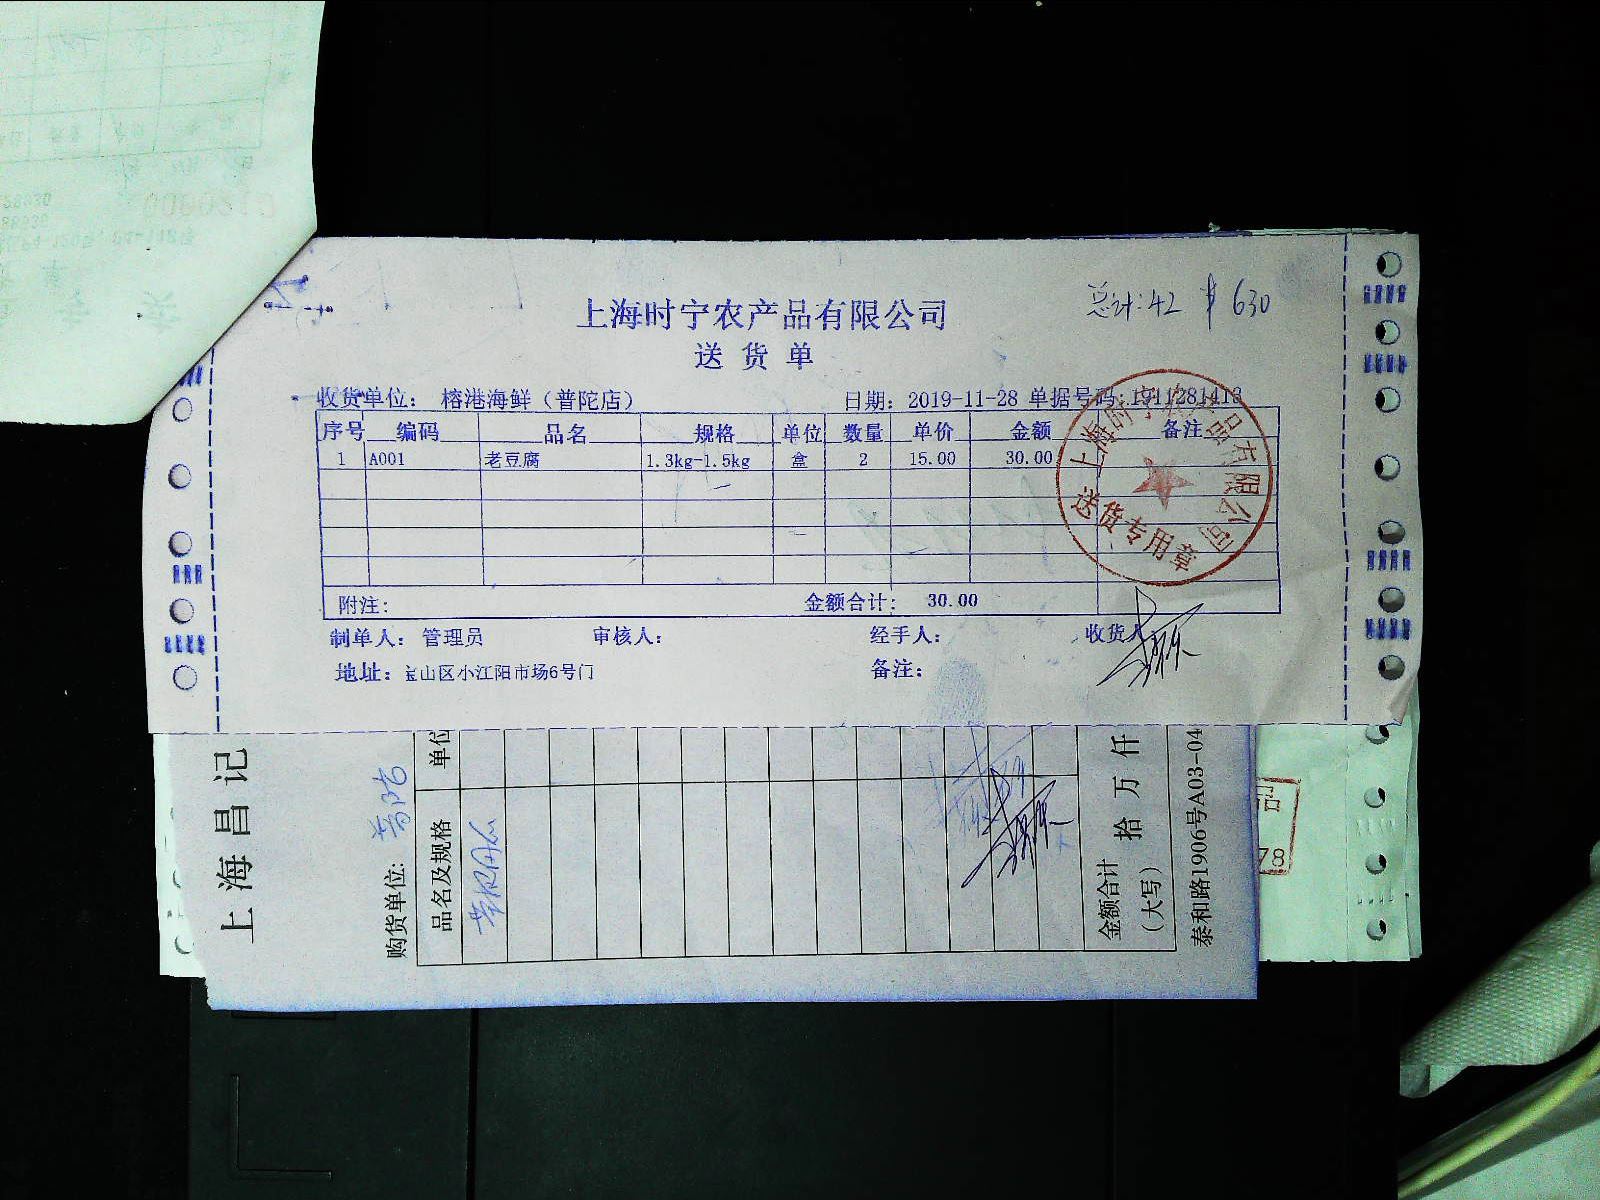 上海时宁农产品有限公司
总计:42 ¥630
送货单
收货单位: 榕港海鲜(普陀店) 日期: 2019-11-28 单据号码: 1911281413
序号 编码 品名 规格 单位 数量 单价 金额 备注
1 A001 老豆腐 1.3kg-1.5kg 盒 2 15.00 30.00
附注: 金额合计: 30.00
制单人: 管理员 审核人: 经手人: 收货人
地址: 宝山区小江阳市场6号门 备注:
上海时宁农产品有限公司
送货专用章
上海昌记
购货单位: 普陀
品名及规格 单位
金额合计(大写) 拾 万 仟
泰和路1906号A03-04
78